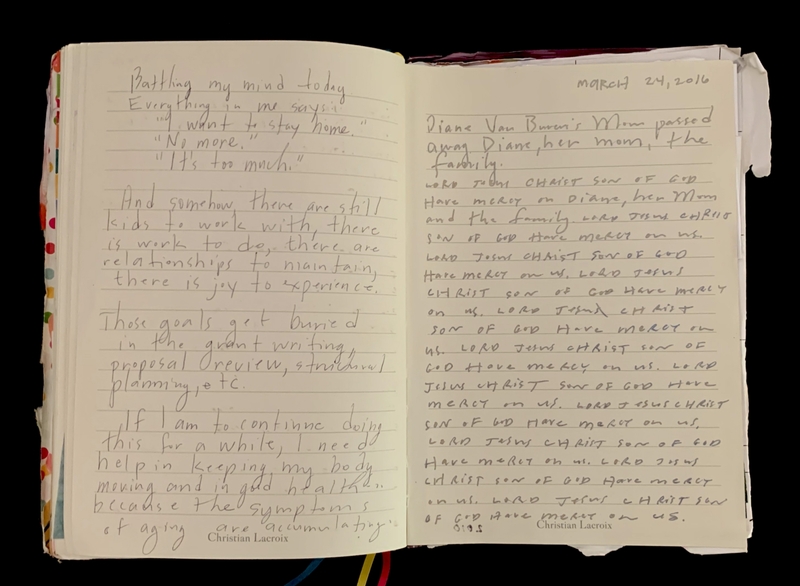 Battling my mind today
Everything in me says:
"I want to stay home."
"No more."
"It's too much."
And somehow, there are still
kids to work with, there
is work to do, there are
relationships to maintain,
there is joy to experience.
Those goals get buried
in the grant writing,
proposal review, structural
planning, etc.
If I am to continue doing
this for a while, I need
help in keeping my body
moving and in good health
because the symptoms
of aging are accumulating.
Christian Lacroix
March 24, 2016
Diane Van Buren's Mom passed
away Diane, her mom, the
family.
LORD JESUS CHRIST SON OF GOD
Have mercy on Diane, her Mom
and the family. LORD JESUS CHRIST
SON OF GOD Have mercy on us.
LORD JESUS CHRIST SON OF GOD
Have mercy on us. LORD JESUS
CHRIST SON OF GOD Have mercy
on us. LORD JESUS CHRIST
SON OF GOD Have mercy on
us. LORD JESUS CHRIST SON OF
GOD Have mercy on us. LORD
JESUS CHRIST SON OF GOD Have
mercy on us. LORD JESUS CHRIST
SON OF GOD Have mercy on us.
LORD JESUS CHRIST SON OF GOD
Have mercy on us. LORD JESUS
CHRIST SON OF GOD Have mercy
on us. LORD JESUS CHRIST SON
OF GOD Have mercy on us.
Christian Lacroix